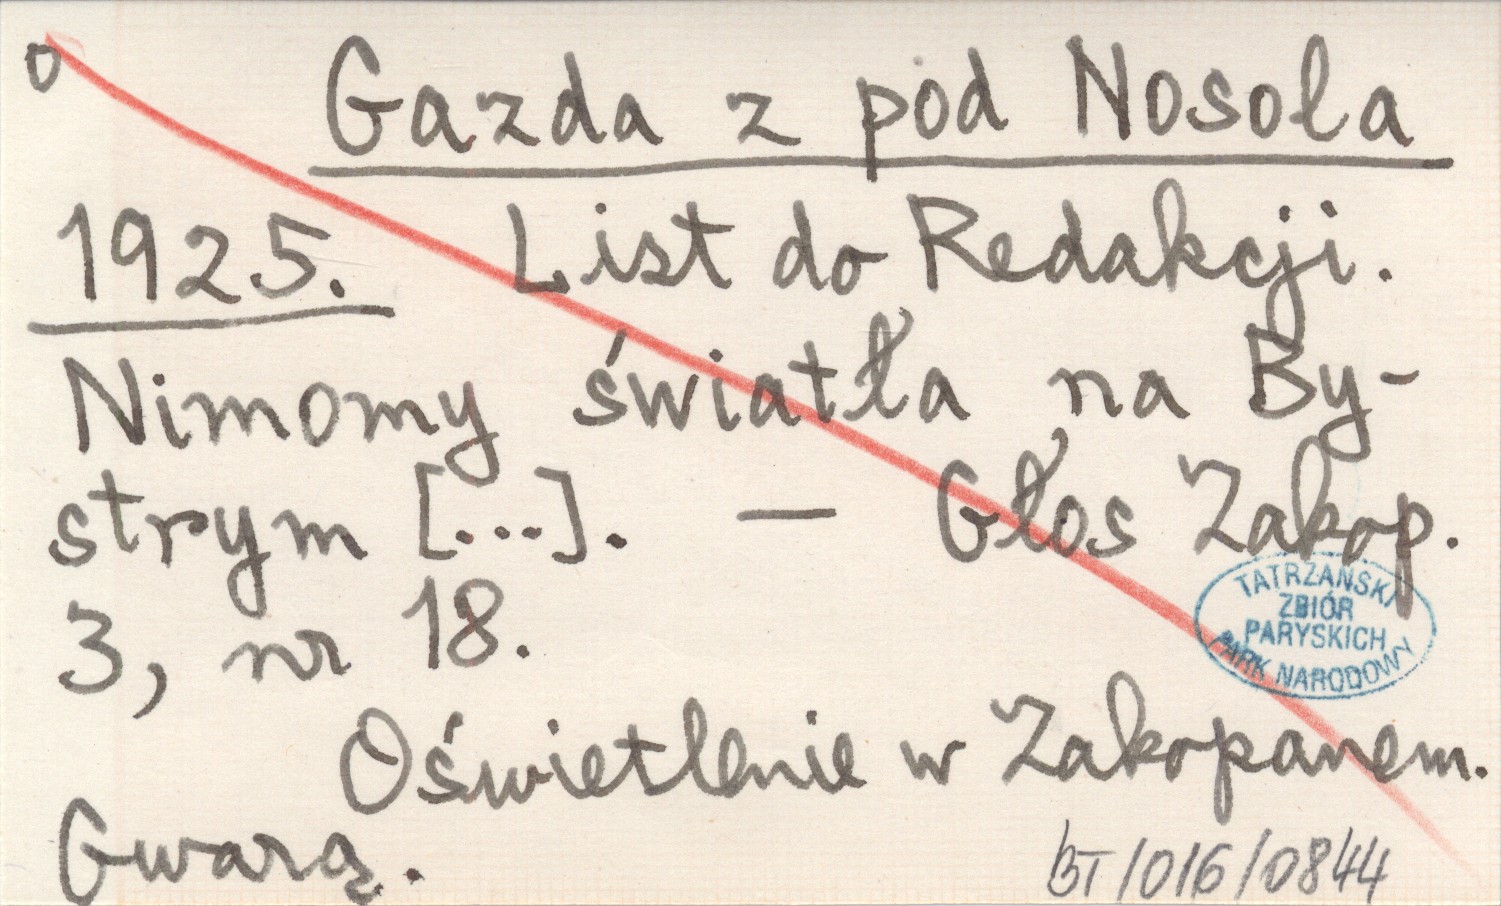 o
Gazda z pod Nosola
1925. List do Redakcji.
Nimomy światła na By-
strym [...]. — Głos Zakop.
3, nr 18.
TATRZAŃSKI
ZBIÓR
PARYSKICH
PARK NARODOWY
Oświetlenie w Zakopanem.
Gwarą.
BT/016/0844